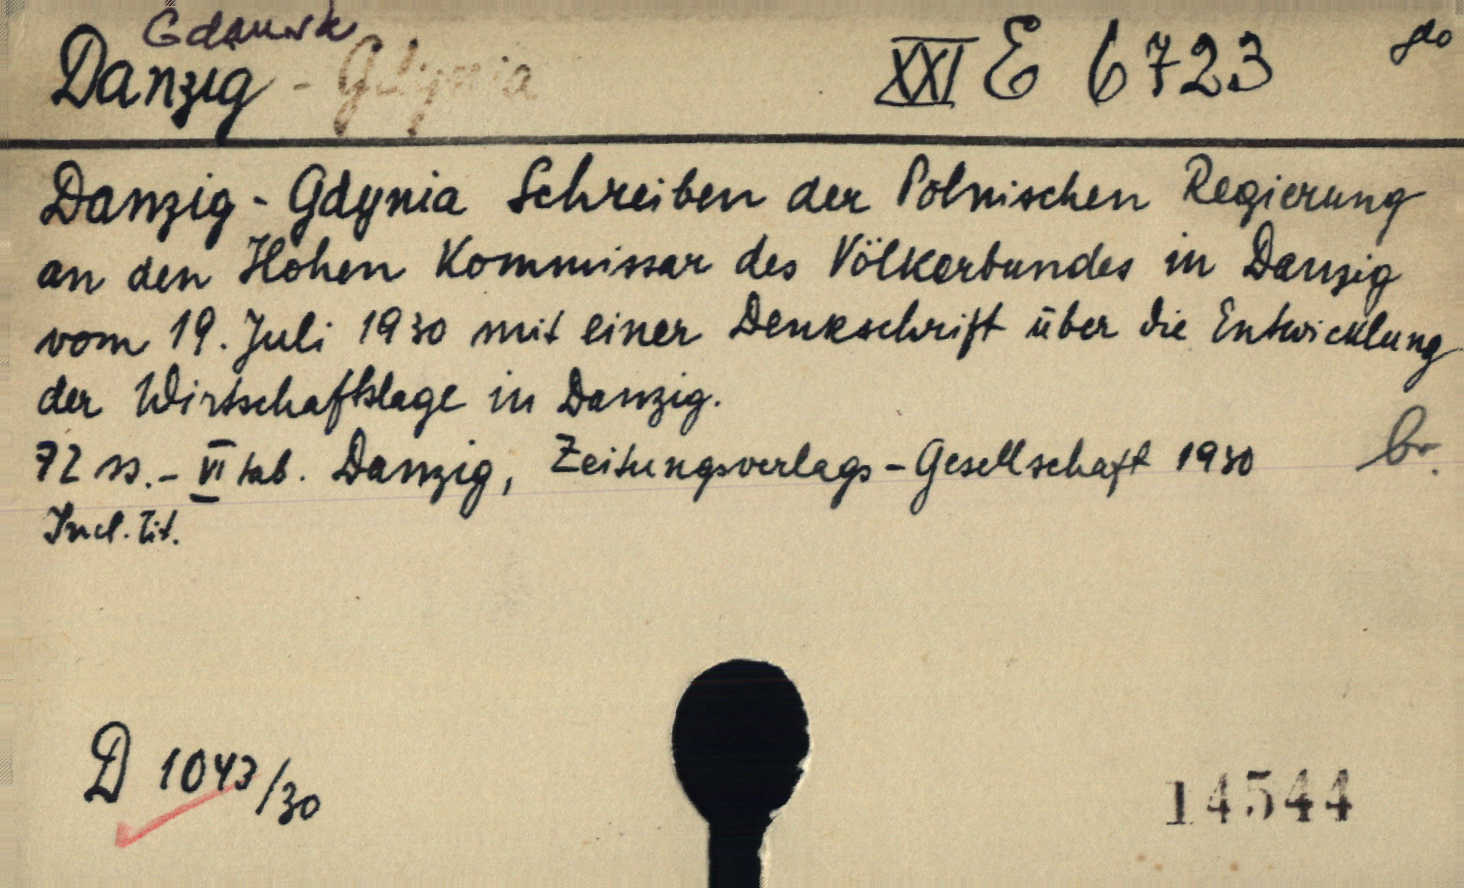 Gdańsk
Danzig - Gdynia XXI E 6723
Danzig - Gdynia Schreiben der Polnischen Regierung
an den Hohen Kommissar des Völkerbundes in Danzig
vom 19. Juli 1930 mit einer Denkschrift über die Entwicklung
der Wirtschaftslage in Danzig.
72 ss. - VI tab. Danzig, Zeitungsverlags - Gesellschaft 1930 br.
Incl. tit.
D 1043/30
14544